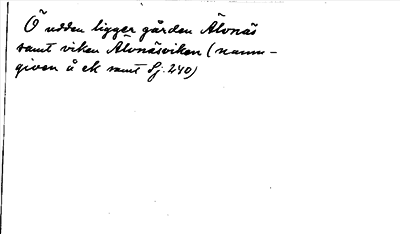 Å udden ligger gården Älvnäs
samt viken Älvnäsviken (namn-
given å ek samt Sj. 240)